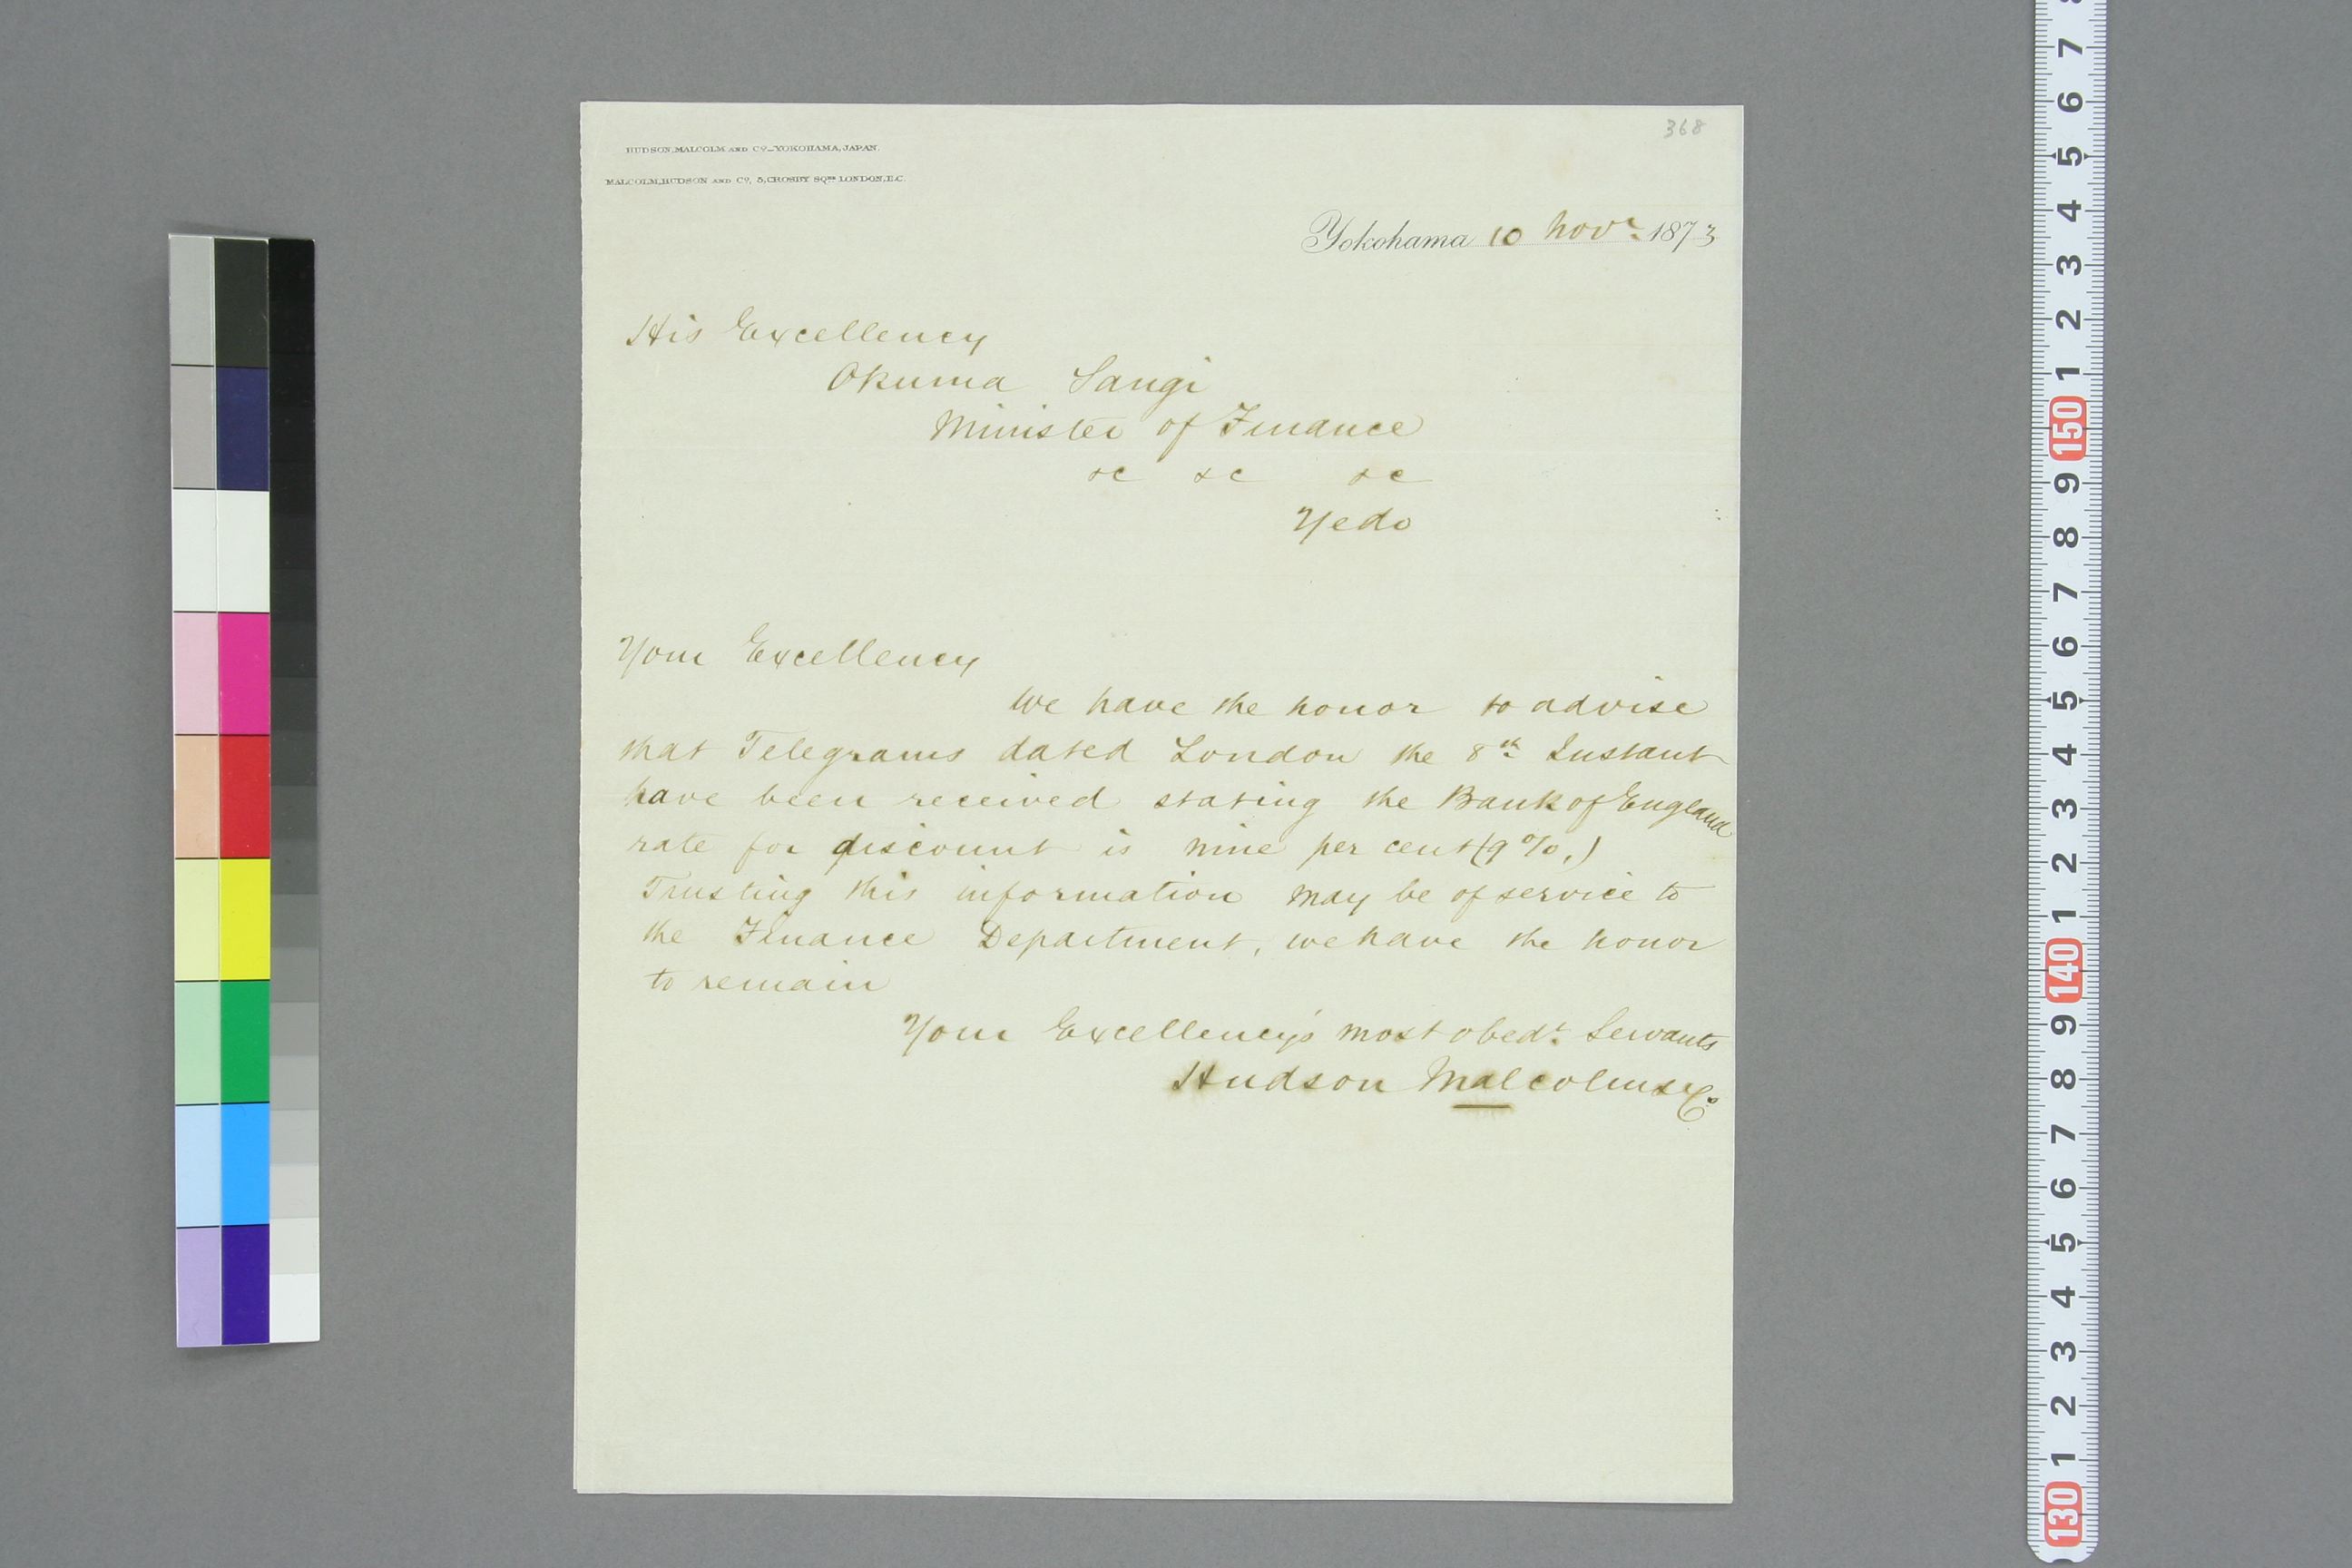 368
HUDSON, MALCOLM AND Cº_YOKOHAMA, JAPAN.
MALCOLM, HUDSON AND Cº, 5, CROSBY SQRE LONDON, E.C.
Yokohama 10 Novr 1873
His Excellency
Okuma Sangi
Minister of Finance
&c &c &c
Yedo
Your Excellency
We have the honor to advise
that Telegrams dated London the 8th Instant
have been received stating the Bank of England
rate for discount is nine per cent (9%.)
Trusting this information may be of service to
the Finance Department, we have the honor
to remain
Your Excellency's most obedt Servants
Hudson Malcolm & Co
8
7
6
5
4
3
2
1
150
9
8
7
6
5
4
3
2
1
140
9
8
7
6
5
4
3
2
1
130